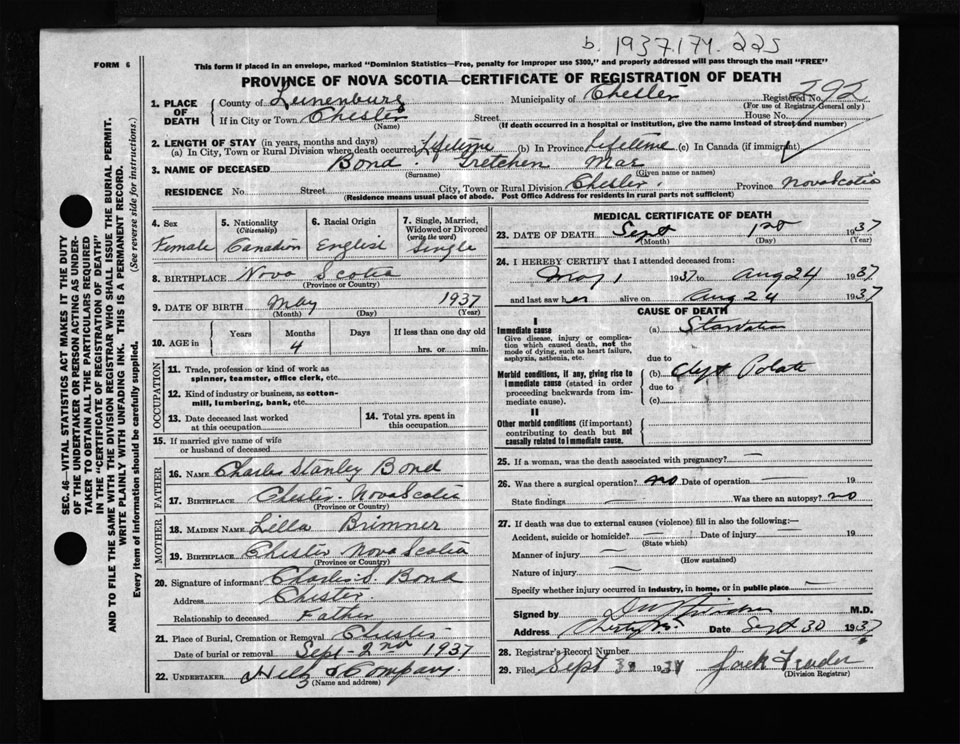 b. 1937.174.225
FORM 6
This form if placed in an envelope, marked "Dominion Statistics—Free, penalty for improper use $300," and properly addressed will pass through the mail "FREE"
PROVINCE OF NOVA SCOTIA—CERTIFICATE OF REGISTRATION OF DEATH
1. PLACE OF DEATH County of Lunenburg Municipality of Chester Registered No. 292
(For use of Registrar General only)
If in City or Town Chester Street House No.
(Name) (If death occurred in a hospital or institution, give the name instead of street and number)
2. LENGTH OF STAY (in years, months and days)
(a) In City, Town or Rural Division where death occurred Lifetime (b) In Province Lifetime (c) In Canada (if immigrant)
3. NAME OF DECEASED Bond Gretchen Mae
(Surname) (Given name or names)
RESIDENCE No. Street City, Town or Rural Division Chester Province Nova Scotia
(Residence means usual place of abode. Post Office Address for residents in rural parts not sufficient)
SEC. 46—VITAL STATISTICS ACT MAKES IT THE DUTY
OF THE UNDERTAKER OR PERSON ACTING AS UNDER-
TAKER TO OBTAIN ALL THE PARTICULARS REQUIRED
IN THE "CERTIFICATE OF REGISTRATION OF DEATH"
AND TO FILE THE SAME WITH THE DIVISION REGISTRAR WHO SHALL ISSUE THE BURIAL PERMIT.
WRITE PLAINLY WITH UNFADING INK. THIS IS A PERMANENT RECORD.
Every item of information should be carefully supplied. (See reverse side for instructions.)
4. Sex 5. Nationality (Citizenship) 6. Racial Origin 7. Single, Married, Widowed or Divorced (write the word)
Female Canadian English Single
8. BIRTHPLACE Nova Scotia
(Province or Country)
9. DATE OF BIRTH May 1937
(Month) (Day) (Year)
10. AGE in Years Months Days If less than one day old
4 hrs. or min.
OCCUPATION
11. Trade, profession or kind of work as spinner, teamster, office clerk, etc.
12. Kind of industry or business, as cotton-mill, lumbering, bank, etc.
13. Date deceased last worked at this occupation
14. Total yrs. spent in this occupation
15. If married give name of wife or husband of deceased
FATHER
16. NAME Charles Stanley Bond
17. BIRTHPLACE Chester Nova Scotia
(Province or Country)
MOTHER
18. MAIDEN NAME Lilla Brimner
19. BIRTHPLACE Chester Nova Scotia
(Province or Country)
20. Signature of informant Charles S. Bond
Address Chester
Relationship to deceased Father
21. Place of Burial, Cremation or Removal Chester
Date of burial or removal Sept 2nd 1937
22. UNDERTAKER & Company
(Name and address)
MEDICAL CERTIFICATE OF DEATH
23. DATE OF DEATH Sept 1st 1937
(Month) (Day) (Year)
24. I HEREBY CERTIFY that I attended deceased from:
May 1 1937 to Aug 24 1937
and last saw her alive on Aug 24 1937
CAUSE OF DEATH
I
Immediate cause (a) Starvation
Give disease, injury or complication which caused death, not the mode of dying, such as heart failure, asphyxia, asthenia, etc.
due to
Morbid conditions, if any, giving rise to immediate cause (stated in order proceeding backwards from immediate cause). (b) Clept Palate
due to
(c)
II
Other morbid conditions (if important) contributing to death but not causally related to immediate cause.
25. If a woman, was the death associated with pregnancy?
26. Was there a surgical operation? no Date of operation — 19
State findings — Was there an autopsy? no
27. If death was due to external causes (violence) fill in also the following:—
Accident, suicide or homicide? — Date of injury — 19
(State which)
Manner of injury —
(How sustained)
Nature of injury —
Specify whether injury occurred in industry, in home, or in public place —
Signed by M.D.
Address Chester N.S. Date Sept 30 1937
28. Registrar's Record Number
29. Filed Sept 30 1937
(Division Registrar)